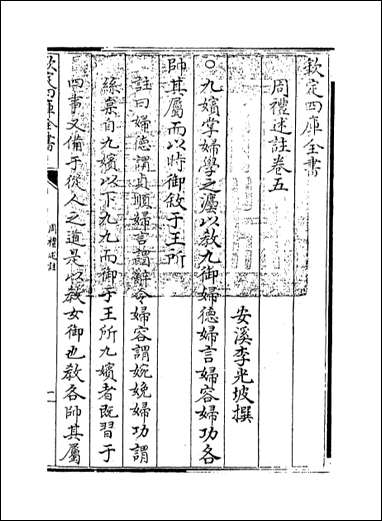 欽定四庫全書
周禮述註卷五
安溪李光坡撰
○九嬪掌婦學之灋以教九御婦德婦言婦容婦功各
帥其屬而以時御敘于王所
註曰婦德謂貞順婦言謂辭令婦容謂婉娩婦功謂
絲枲自九嬪以下九九而御于王所九嬪者既習于
四事又備于從人之道是以教女御也教各帥其屬
欽定四庫全書
周禮述註
一